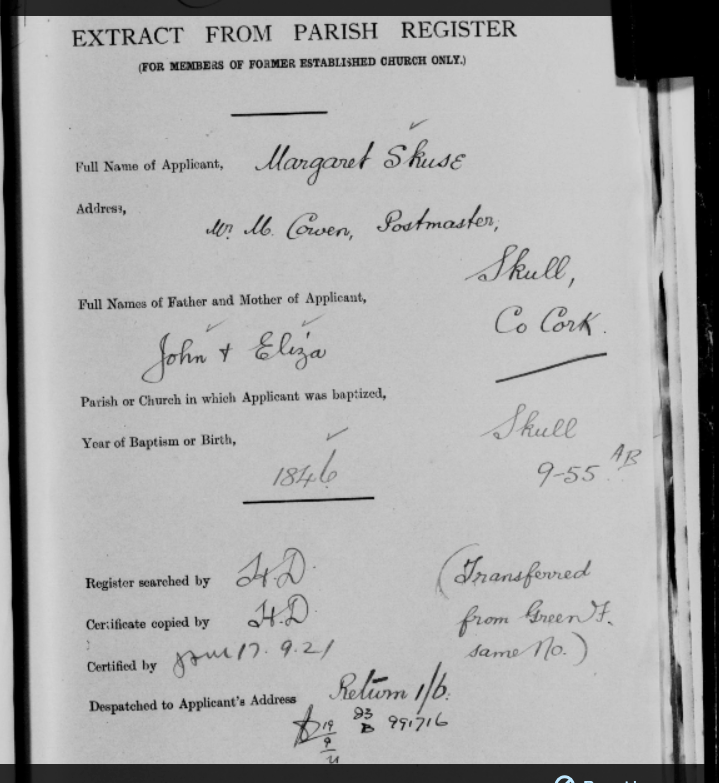 EXTRACT FROM PARISH REGISTER
(FOR MEMBERS OF FORMER ESTABLISHED CHURCH ONLY.)
Full Name of Applicant, Margaret Skuse
Address,
Mr. M. Cowen, Postmaster,
Skull,
Full Names of Father and Mother of Applicant,
Co Cork.
John & Eliza
Parish or Church in which Applicant was baptized,
Skull
Year of Baptism or Birth,
1846
9-55 AB
Register searched by H.D.
(Transferred
Certificate copied by H.D.
from Green F.
Certified by 17.9.21
same No.)
Despatched to Applicant's Address Return 1/6.
19
9
23
B 991716